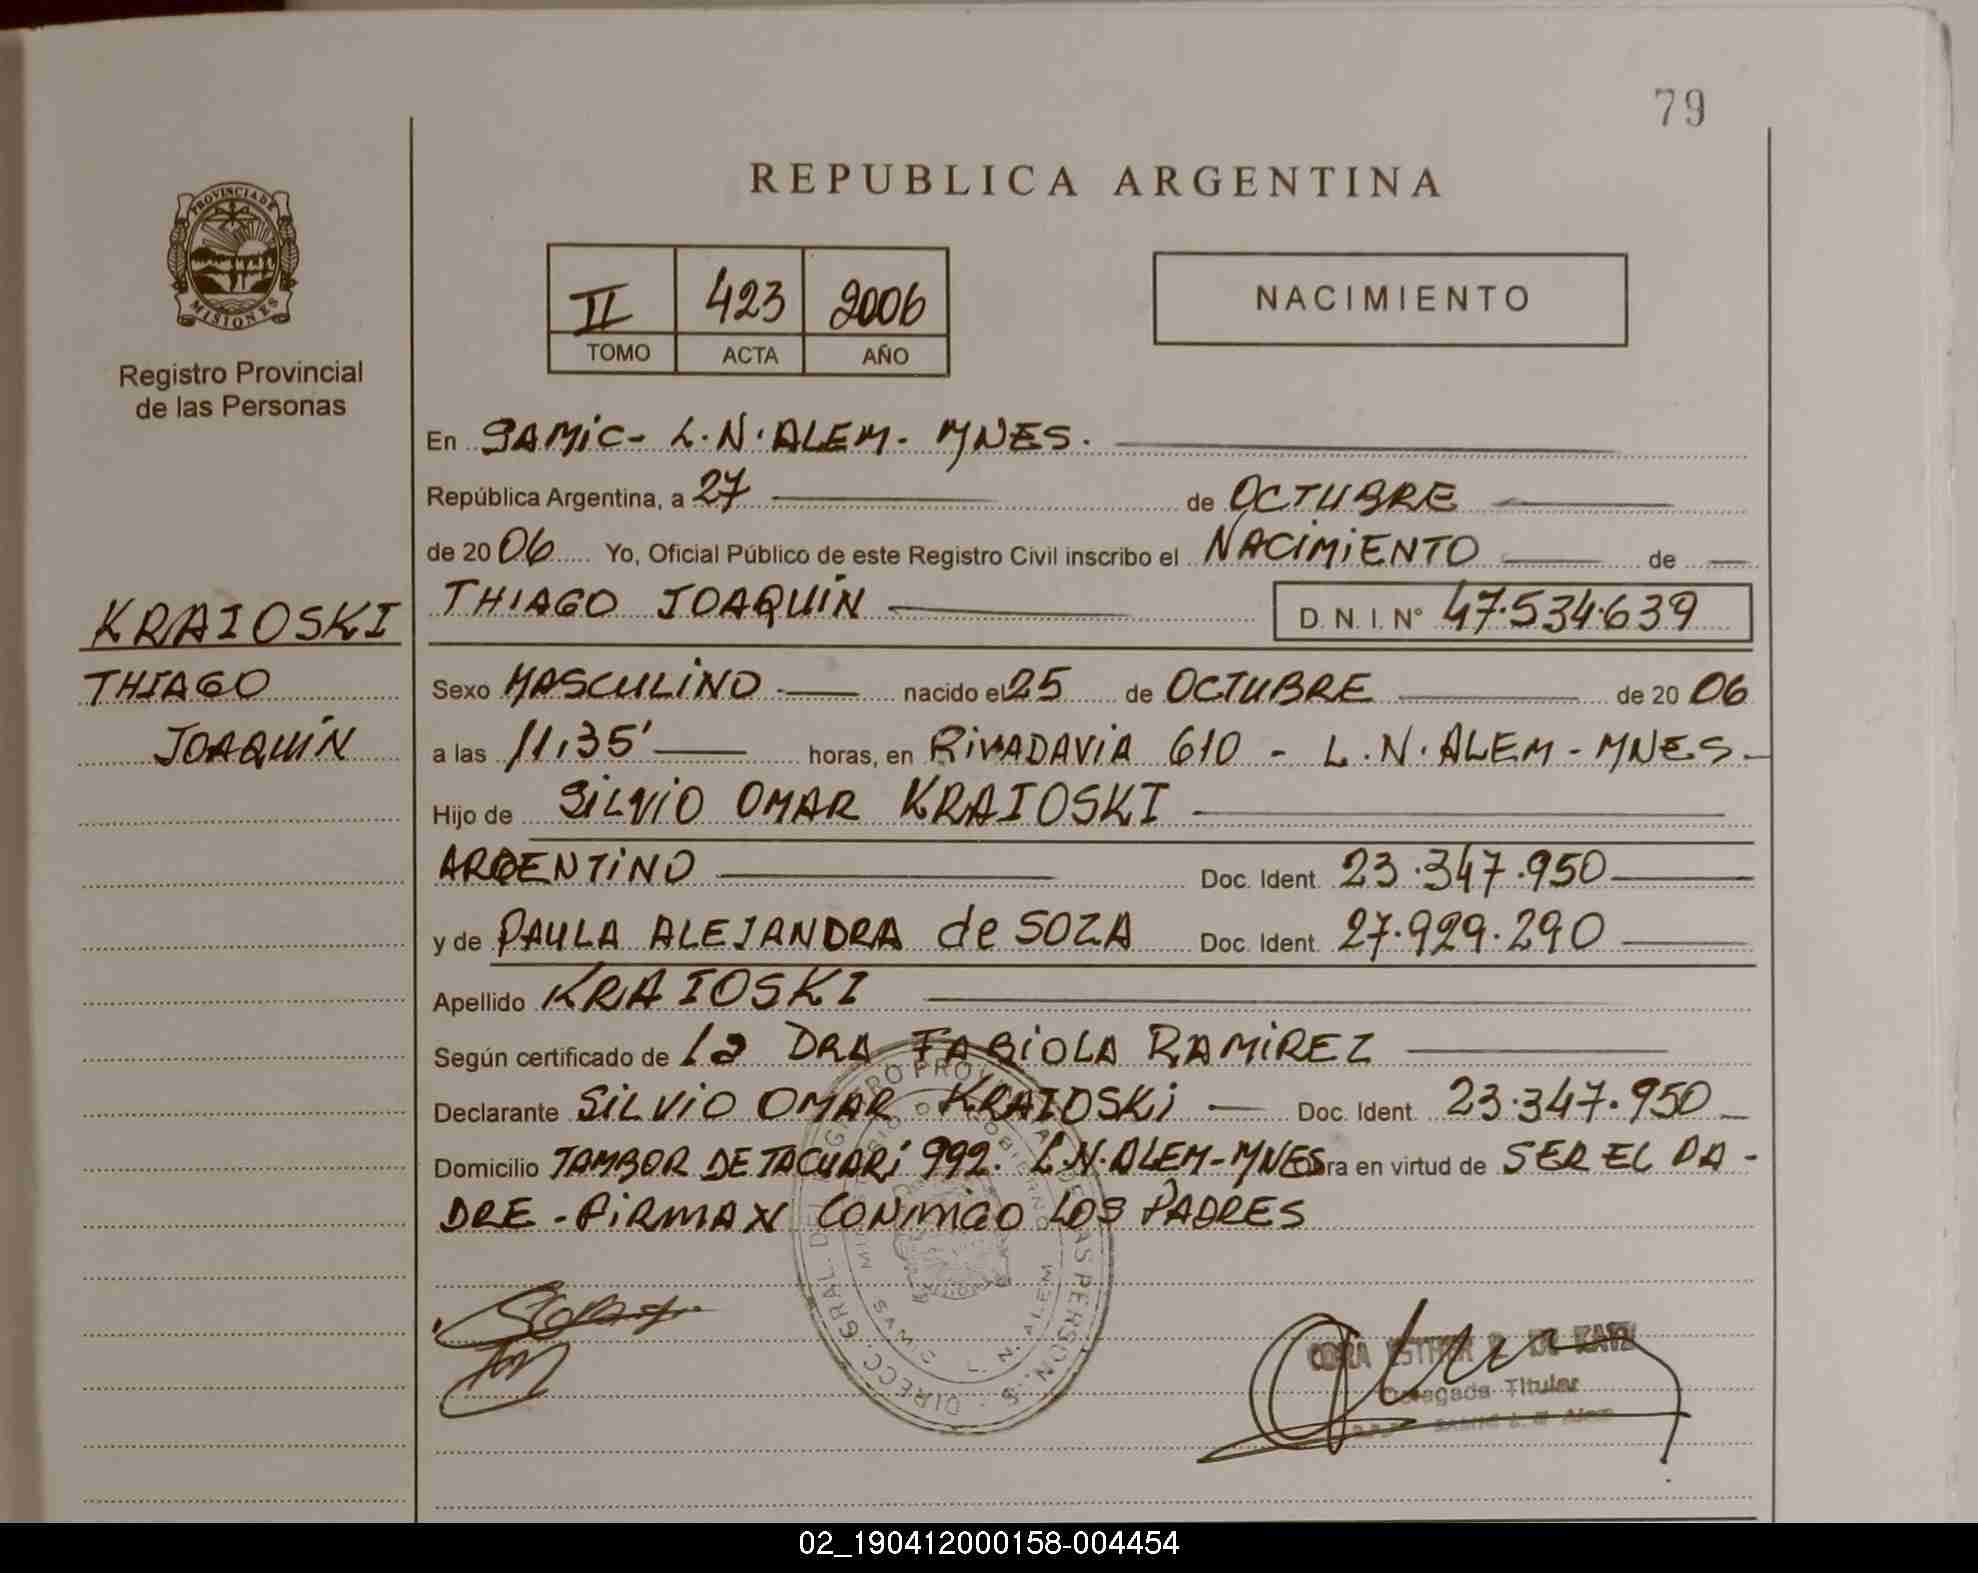 79
REPUBLICA ARGENTINA
PROVINCIA DE
MISIONES
Registro Provincial
de las Personas
II 423 2006
TOMO ACTA AÑO
NACIMIENTO
En SAMIC- L.N.ALEM- MNES.
República Argentina, a 27 de OCTUBRE
de 20 06 Yo, Oficial Público de este Registro Civil inscribo el NACIMIENTO de
THIAGO JOAQUÍN D. N. I. N° 47.534.639
KRAIOSKI
THIAGO
JOAQUÍN
Sexo MASCULINO nacido el 25 de OCTUBRE de 20 06
a las 11,35' horas, en RIVADAVIA 610 - L.N.ALEM - MNES.
Hijo de SILVIO OMAR KRAIOSKI
ARGENTINO Doc. Ident. 23.347.950
y de PAULA ALEJANDRA de SOZA Doc. Ident. 27.929.290
Apellido KRAIOSKI
Según certificado de la DRA FABIOLA RAMIREZ
Declarante SILVIO OMAR KRAIOSKI Doc. Ident. 23.347.950
Domicilio TAMBOR DE TACUARÍ 992. L.N.ALEM-MNES ra en virtud de SER EL PA-
DRE - FIRMAN CONMIGO LOS PADRES
DIRECC. GRAL. DEL REGISTRO PROVINCIAL DE LAS PERSONAS
MINISTERIO DE GOBIERNO
SAMIC L. N. ALEM
ESTHER DE
Delegada Titular
SAMIC L. N. Alem
02_190412000158-004454